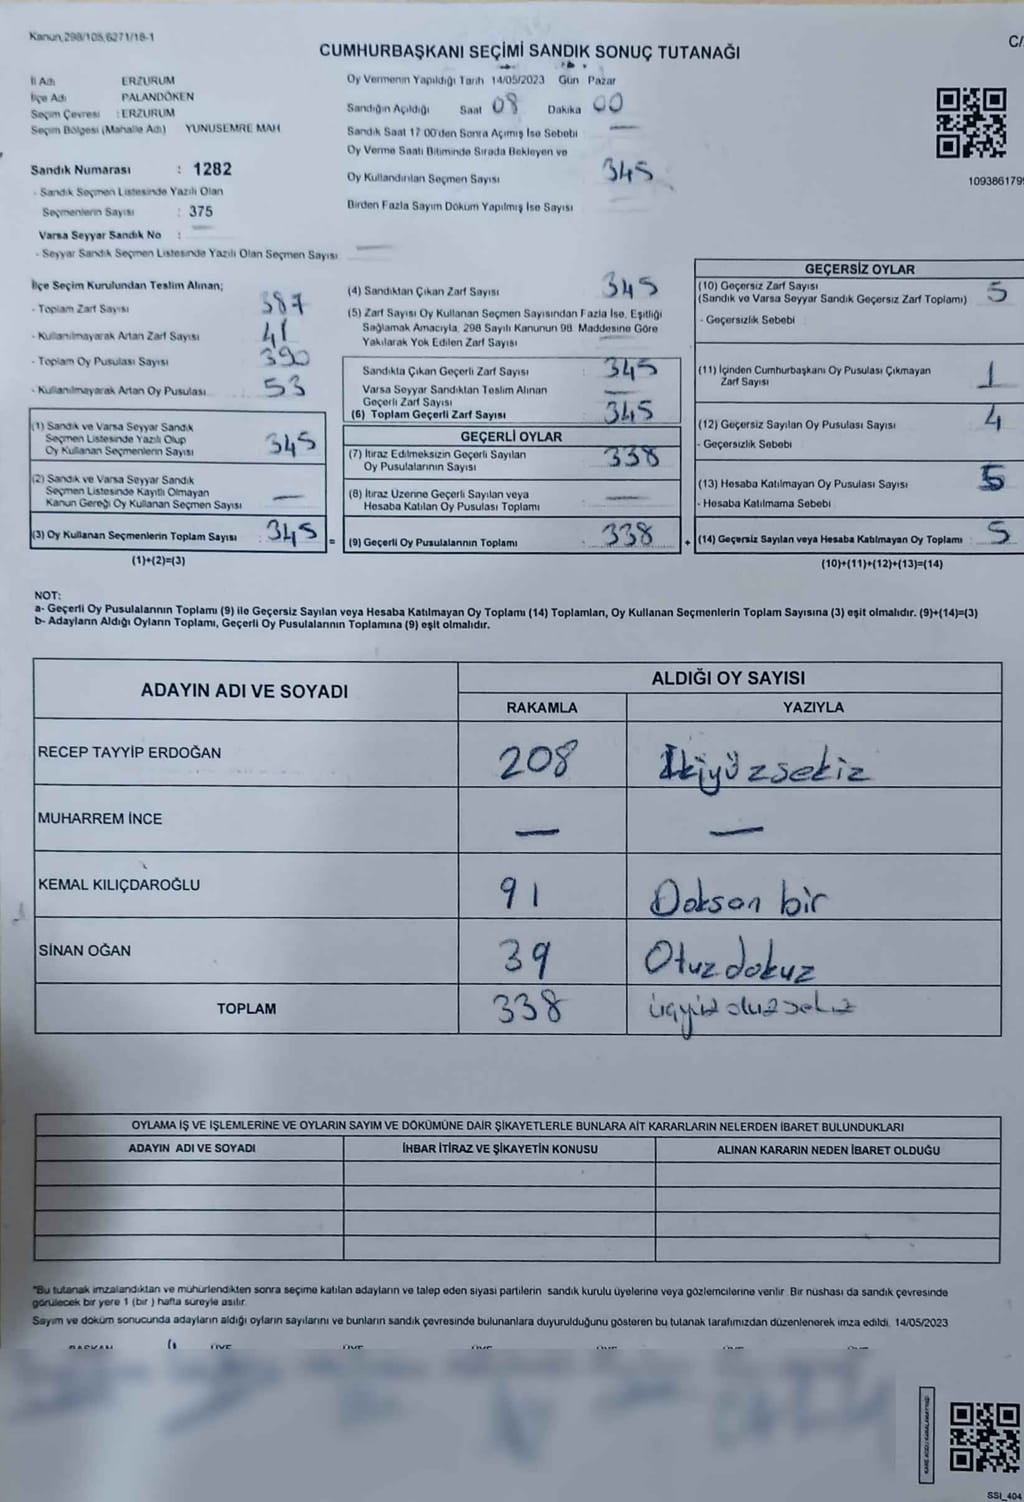 Kanun,298/105,6271/18-1
CUMHURBAŞKANI SEÇİMİ SANDIK SONUÇ TUTANAĞI
C/
İl Adı ERZURUM
İlçe Adı PALANDÖKEN
Seçim Çevresi : ERZURUM
Seçim Bölgesi (Mahalle Adı) YUNUSEMRE MAH
Sandık Numarası : 1282
- Sandık Seçmen Listesinde Yazılı Olan
Seçmenlerin Sayısı : 375
Varsa Seyyar Sandık No :
- Seyyar Sandık Seçmen Listesinde Yazılı Olan Seçmen Sayısı
Oy Vermenin Yapıldığı Tarih 14/05/2023 Gün Pazar
Sandığın Açıldığı Saat 08 Dakika 00
Sandık Saat 17 00'den Sonra Açımış İse Sebebi
Oy Verme Saati Bitiminde Sırada Bekleyen ve
Oy Kullandırılan Seçmen Sayısı 345
Birden Fazla Sayım Döküm Yapılmış İse Sayısı
109386179
İlçe Seçim Kurulundan Teslim Alınan;
- Toplam Zarf Sayısı 387
- Kullanılmayarak Artan Zarf Sayısı 41
- Toplam Oy Pusulası Sayısı 390
- Kullanılmayarak Artan Oy Pusulası 53
(1) Sandık ve Varsa Seyyar Sandık
Seçmen Listesinde Yazılı Olup
Oy Kullanan Seçmenlerin Sayısı 345
(2) Sandık ve Varsa Seyyar Sandık
Seçmen Listesinde Kayıtlı Olmayan
Kanun Gereği Oy Kullanan Seçmen Sayısı —
(3) Oy Kullanan Seçmenlerin Toplam Sayısı : 345
(1)+(2)=(3)
(4) Sandıktan Çıkan Zarf Sayısı 345
(5) Zarf Sayısı Oy Kullanan Seçmen Sayısından Fazla İse, Eşitliği
Sağlamak Amacıyla, 298 Sayılı Kanunun 98. Maddesine Göre
Yakılarak Yok Edilen Zarf Sayısı
Sandıkta Çıkan Geçerli Zarf Sayısı : 345
Varsa Seyyar Sandıktan Teslim Alınan
Geçerli Zarf Sayısı
(6) Toplam Geçerli Zarf Sayısı 345
GEÇERLİ OYLAR
(7) İtiraz Edilmeksizin Geçerli Sayılan
Oy Pusulalarının Sayısı 338
(8) İtiraz Üzerine Geçerli Sayılan veya
Hesaba Katılan Oy Pusulası Toplamı —
= (9) Geçerli Oy Pusulalarının Toplamı 338
GEÇERSİZ OYLAR
(10) Geçersiz Zarf Sayısı 5
(Sandık ve Varsa Seyyar Sandık Geçersiz Zarf Toplamı)
- Geçersizlik Sebebi
(11) İçinden Cumhurbaşkanı Oy Pusulası Çıkmayan
Zarf Sayısı 1
(12) Geçersiz Sayılan Oy Pusulası Sayısı 4
- Geçersizlik Sebebi
(13) Hesaba Katılmayan Oy Pusulası Sayısı 5
- Hesaba Katılmama Sebebi
+ (14) Geçersiz Sayılan veya Hesaba Katılmayan Oy Toplamı 5
(10)+(11)+(12)+(13)=(14)
NOT:
a- Geçerli Oy Pusulalarının Toplamı (9) ile Geçersiz Sayılan veya Hesaba Katılmayan Oy Toplamı (14) Toplamları, Oy Kullanan Seçmenlerin Toplam Sayısına (3) eşit olmalıdır. (9)+(14)=(3)
b- Adayların Aldığı Oyların Toplamı, Geçerli Oy Pusulalarının Toplamına (9) eşit olmalıdır.
ADAYIN ADI VE SOYADI
ALDIĞI OY SAYISI
RAKAMLA YAZIYLA
RECEP TAYYİP ERDOĞAN 208 İkiyüzsekiz
MUHARREM İNCE — —
KEMAL KILIÇDAROĞLU 91 Doksan bir
SİNAN OĞAN 39 Otuz dokuz
TOPLAM 338 üçyüz otuz sekiz
OYLAMA İŞ VE İŞLEMLERİNE VE OYLARIN SAYIM VE DÖKÜMÜNE DAİR ŞİKAYETLERLE BUNLARA AİT KARARLARIN NELERDEN İBARET BULUNDUKLARI
ADAYIN ADI VE SOYADI İHBAR İTİRAZ VE ŞİKAYETİN KONUSU ALINAN KARARIN NEDEN İBARET OLDUĞU
*Bu tutanak imzalandıktan ve mühürlendikten sonra seçime katılan adayların ve talep eden siyasi partilerin sandık kurulu üyelerine veya gözlemcilerine verilir. Bir nüshası da sandık çevresinde
görülecek bir yere 1 (bir ) hafta süreyle asılır.
Sayım ve döküm sonucunda adayların aldığı oyların sayılarını ve bunların sandık çevresinde bulunanlara duyurulduğunu gösteren bu tutanak tarafımızdan düzenlenerek imza edildi. 14/05/2023
BAŞKAN ÜYE ÜYE ÜYE ÜYE ÜYE ÜYE
SSI_404